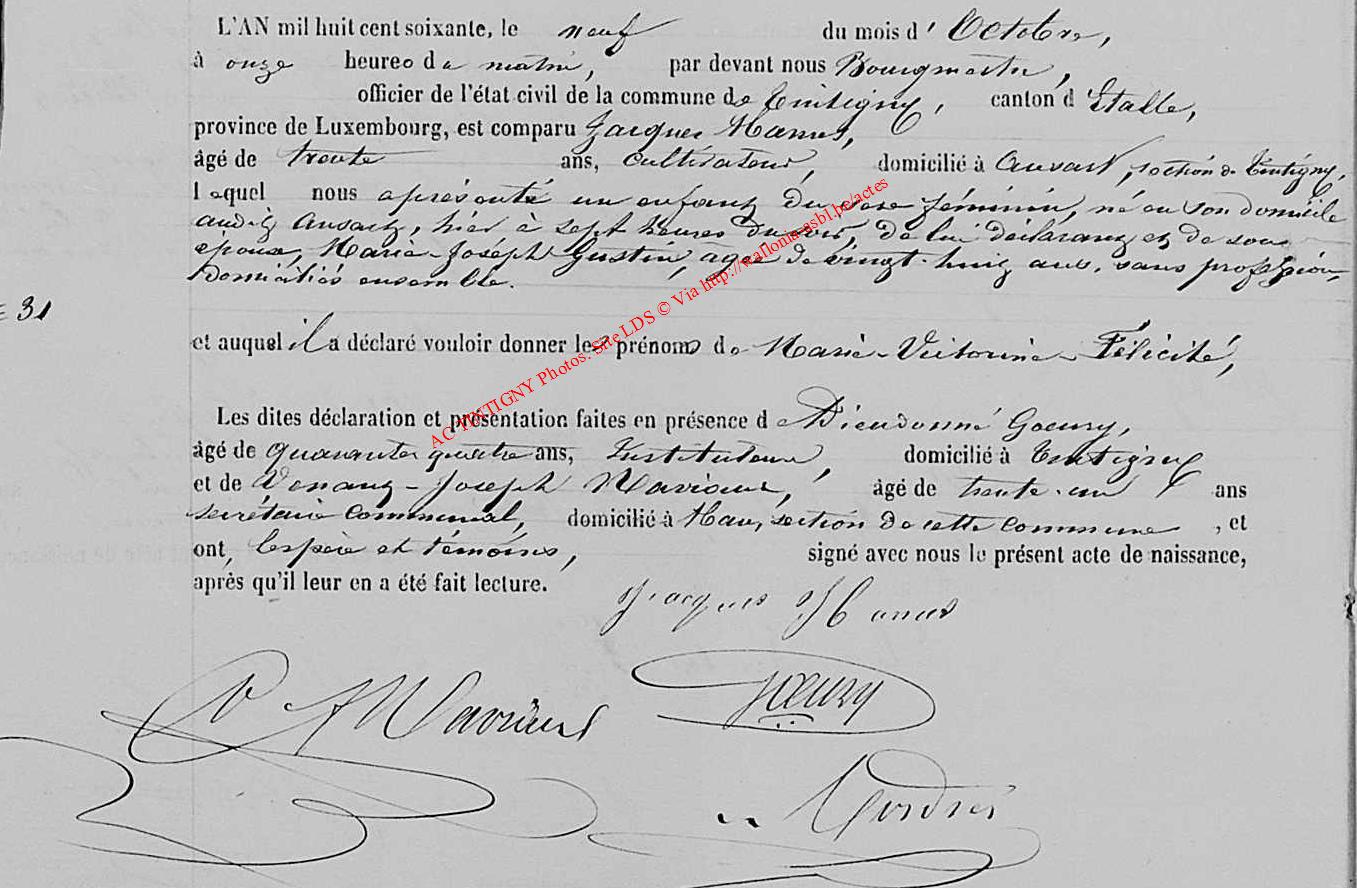 L'AN mil huit cent soixante, le neuf du mois d' Octobre,
à onze heures du matin, par devant nous Bourgmestre,
officier de l'état civil de la commune de Tintigny, canton d'Etalle,
province de Luxembourg, est comparu Jacques
âgé de trente ans, cultivateur, domicilié à Ansart, section de Tintigny,
lequel nous a présenté un enfant du sexe féminin, né en son domicile
audit Ansart, hier à sept heures du soir, de lui déclarant et de son
epouse, Marie-Joséph Gustin, âgée de vingt-huit ans, sans profession,
domiciliés ensemble.
31
et auquel il a déclaré vouloir donner les prénoms de Marie-Victorine-Félicité,
Les dites déclaration et présentation faites en présence de Dieudonné Goeury,
âgé de quarante quatre ans, Instituteur, domicilié à Tintigny
et de Venant-Joseph âgé de trente-un ans
secrétaire communal, domicilié à Han, section de cette commune, et
ont, les père et témoins, signé avec nous le présent acte de naissance,
après qu'il leur en a été fait lecture.
Jacques
Goeury
AC TINTIGNY Photos. Site LDS © Via http://wallonia-asbl.be/actes